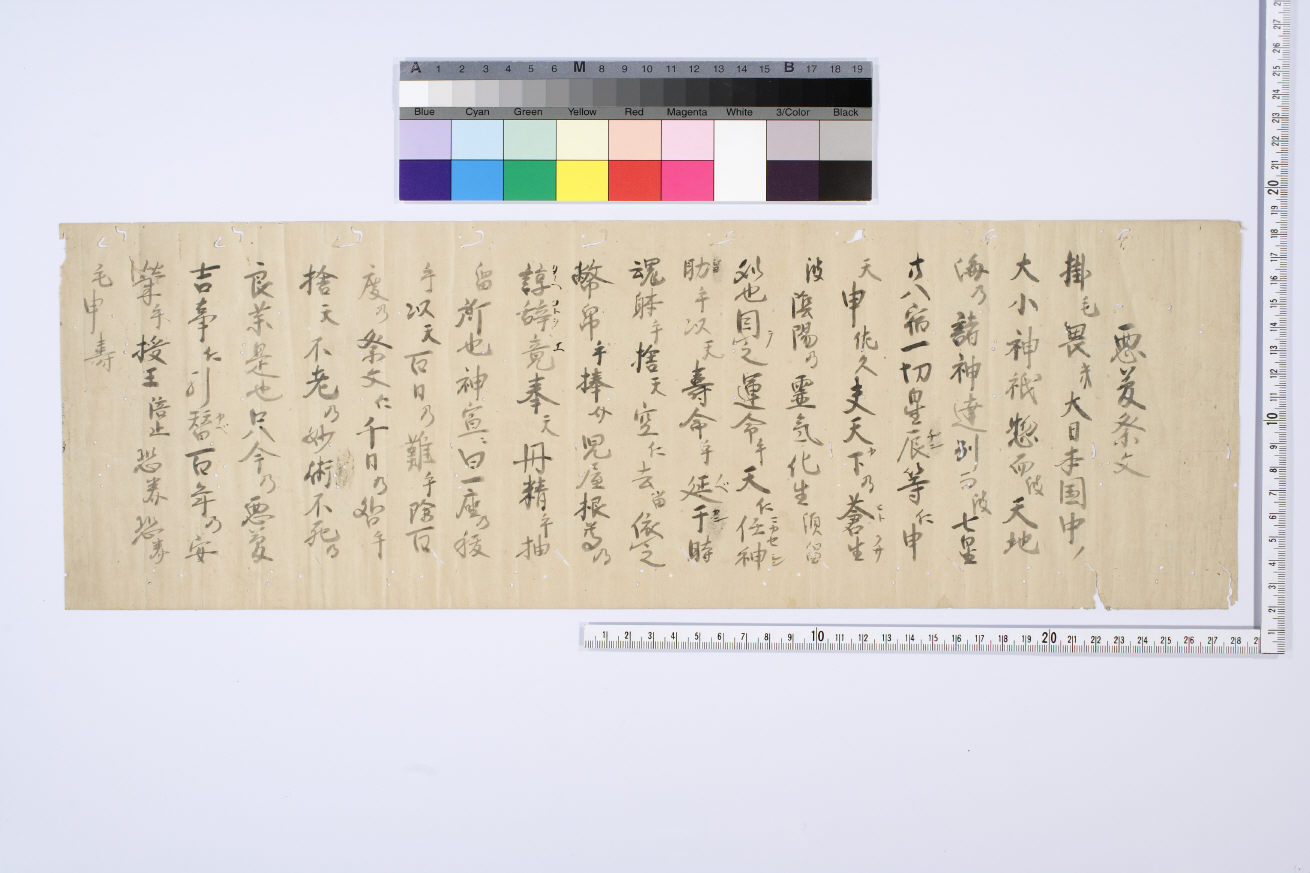 悪夢祭文
掛毛畏幾大日本国中ノ
大小神祇惣而波天地
海乃諸神達別而波七星
廿八宿一切星辰等仁申
天申佐久夫天下乃蒼生
波陰陽乃霊気化生須留
処也因之運命乎天仁任神
助乎以天寿命乎延于時
魂躰乎捨天空仁去留依之
幣帛乎捧児屋根尊乃
諄辞竟奉天丹精乎抽
留所也神宣曰一座乃
乎以天百日乃難乎除百
度乃祭文仁千日乃咎乎
捨天不老乃妙術不死乃
良薬是也只今乃悪夢
吉事仁引替百年乃安
栄乎授玉倍止恐美恐美
毛申寿
A 1 2 3 4 5 6 M 8 9 10 11 12 13 14 15 B 17 18 19
Blue Cyan Green Yellow Red Magenta White 3/Color Black